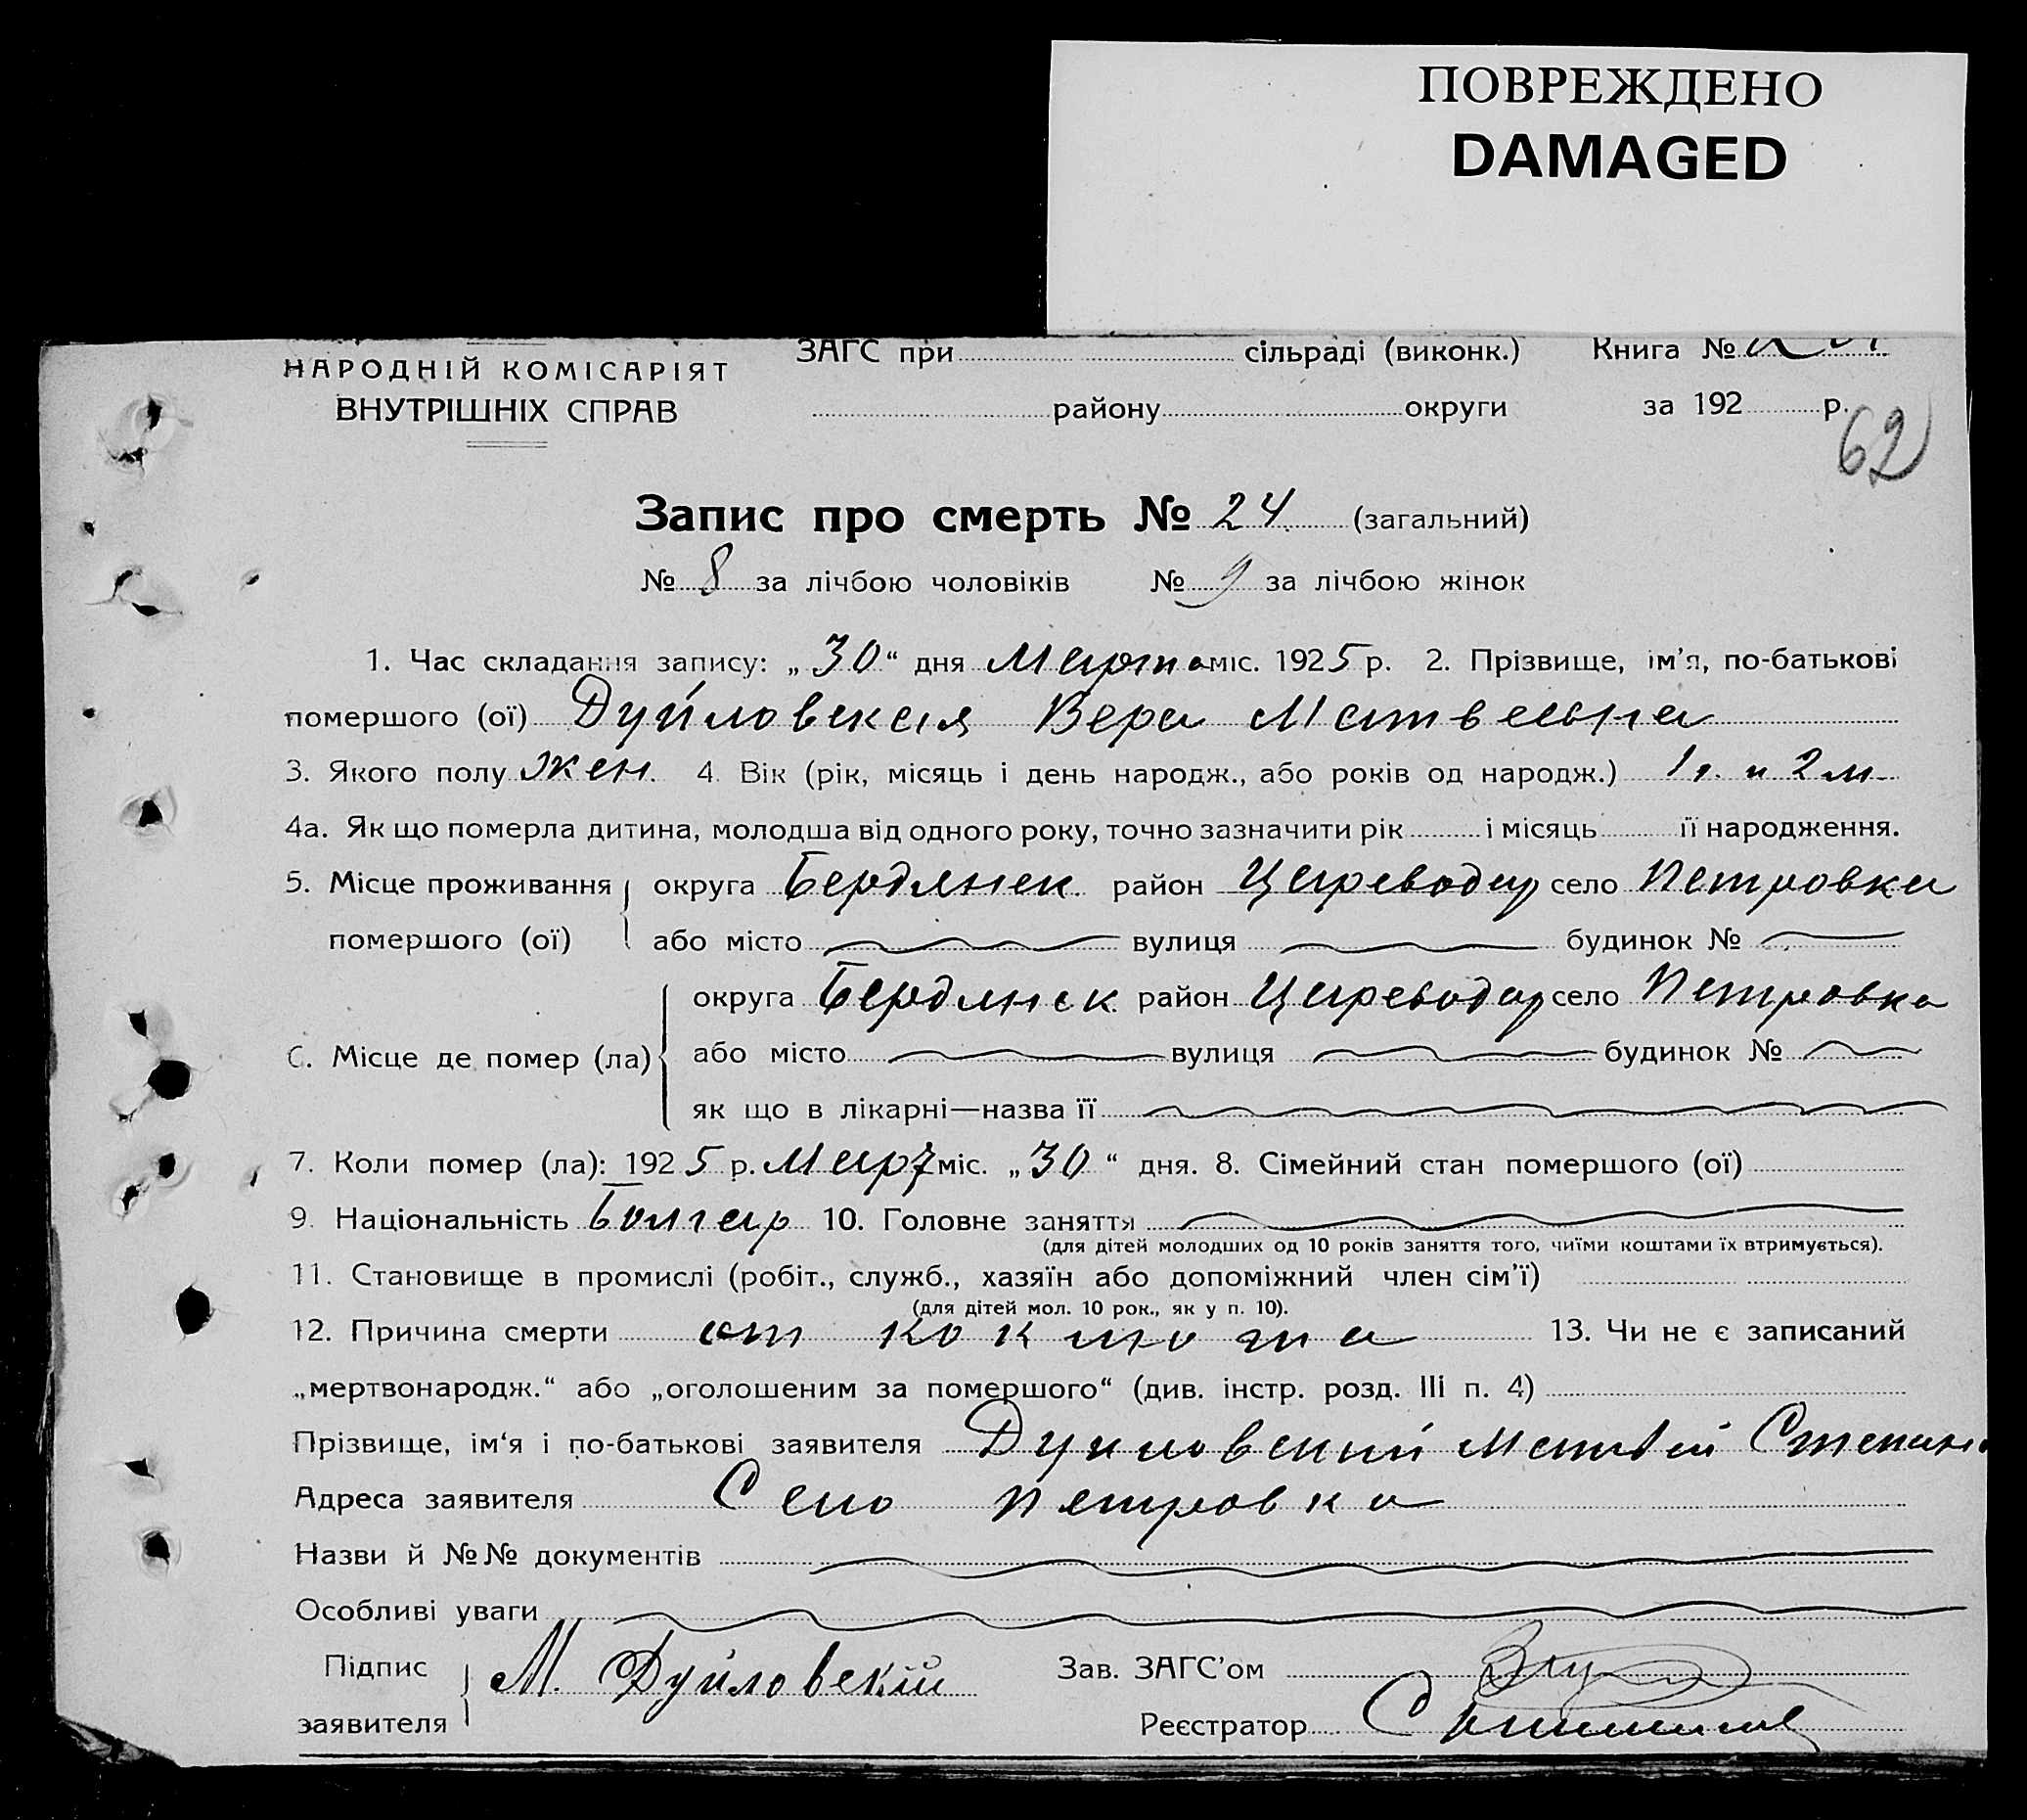 ПОВРЕЖДЕНО
DAMAGED
НАРОДНІЙ КОМІСАРІЯТ
ВНУТРІШНІХ СПРАВ
ЗАГС при сільраді (виконк.) Книга №
району округи за 192 р.
62
Запис про смерть № 24 (загальний)
№ 8 за лічбою чоловіків № 9 за лічбою жінок
1. Час складання запису: „30“ дня Марта міс. 1925 р. 2. Прізвище, ім’я, по-батькові
помершого (ої) Дуйловская Вера Матвеевна
3. Якого полу жен. 4. Вік (рік, місяць і день народж., або років од народж.) 1 г. и 2 м
4а. Як що померла дитина, молодша від одного року, точно зазначити рік і місяць її народження.
5. Місце проживання округа Бердянск район Цареводар село Петровка
помершого (ої) або місто вулиця будинок №
округа Бердянск район Цареводар село Петровка
6. Місце де помер (ла) або місто вулиця будинок №
як що в лікарні—назва її
7. Коли помер (ла): 1925 р. Март міс. „30“ дня. 8. Сімейний стан помершого (ої)
9. Національність Болгар 10. Головне заняття
(для дітей молодших од 10 років заняття того, чиїми коштами їх втримується).
11. Становище в промислі (робіт., служб., хазяїн або допоміжний член сім’ї)
(для дітей мол. 10 рок., як у п. 10).
12. Причина смерти от коклюша 13. Чи не є записаний
„мертвонародж.“ або „оголошеним за помершого“ (див. інстр. розд. III п. 4)
Прізвище, ім‘я і по-батькові заявителя Дуйловский Матвей Степан
Адреса заявителя Село Петровка
Назви й №№ документів
Особливі уваги
Підпис М. Дуйловскій Зав. ЗАГС’ом
заявителя Реєстратор